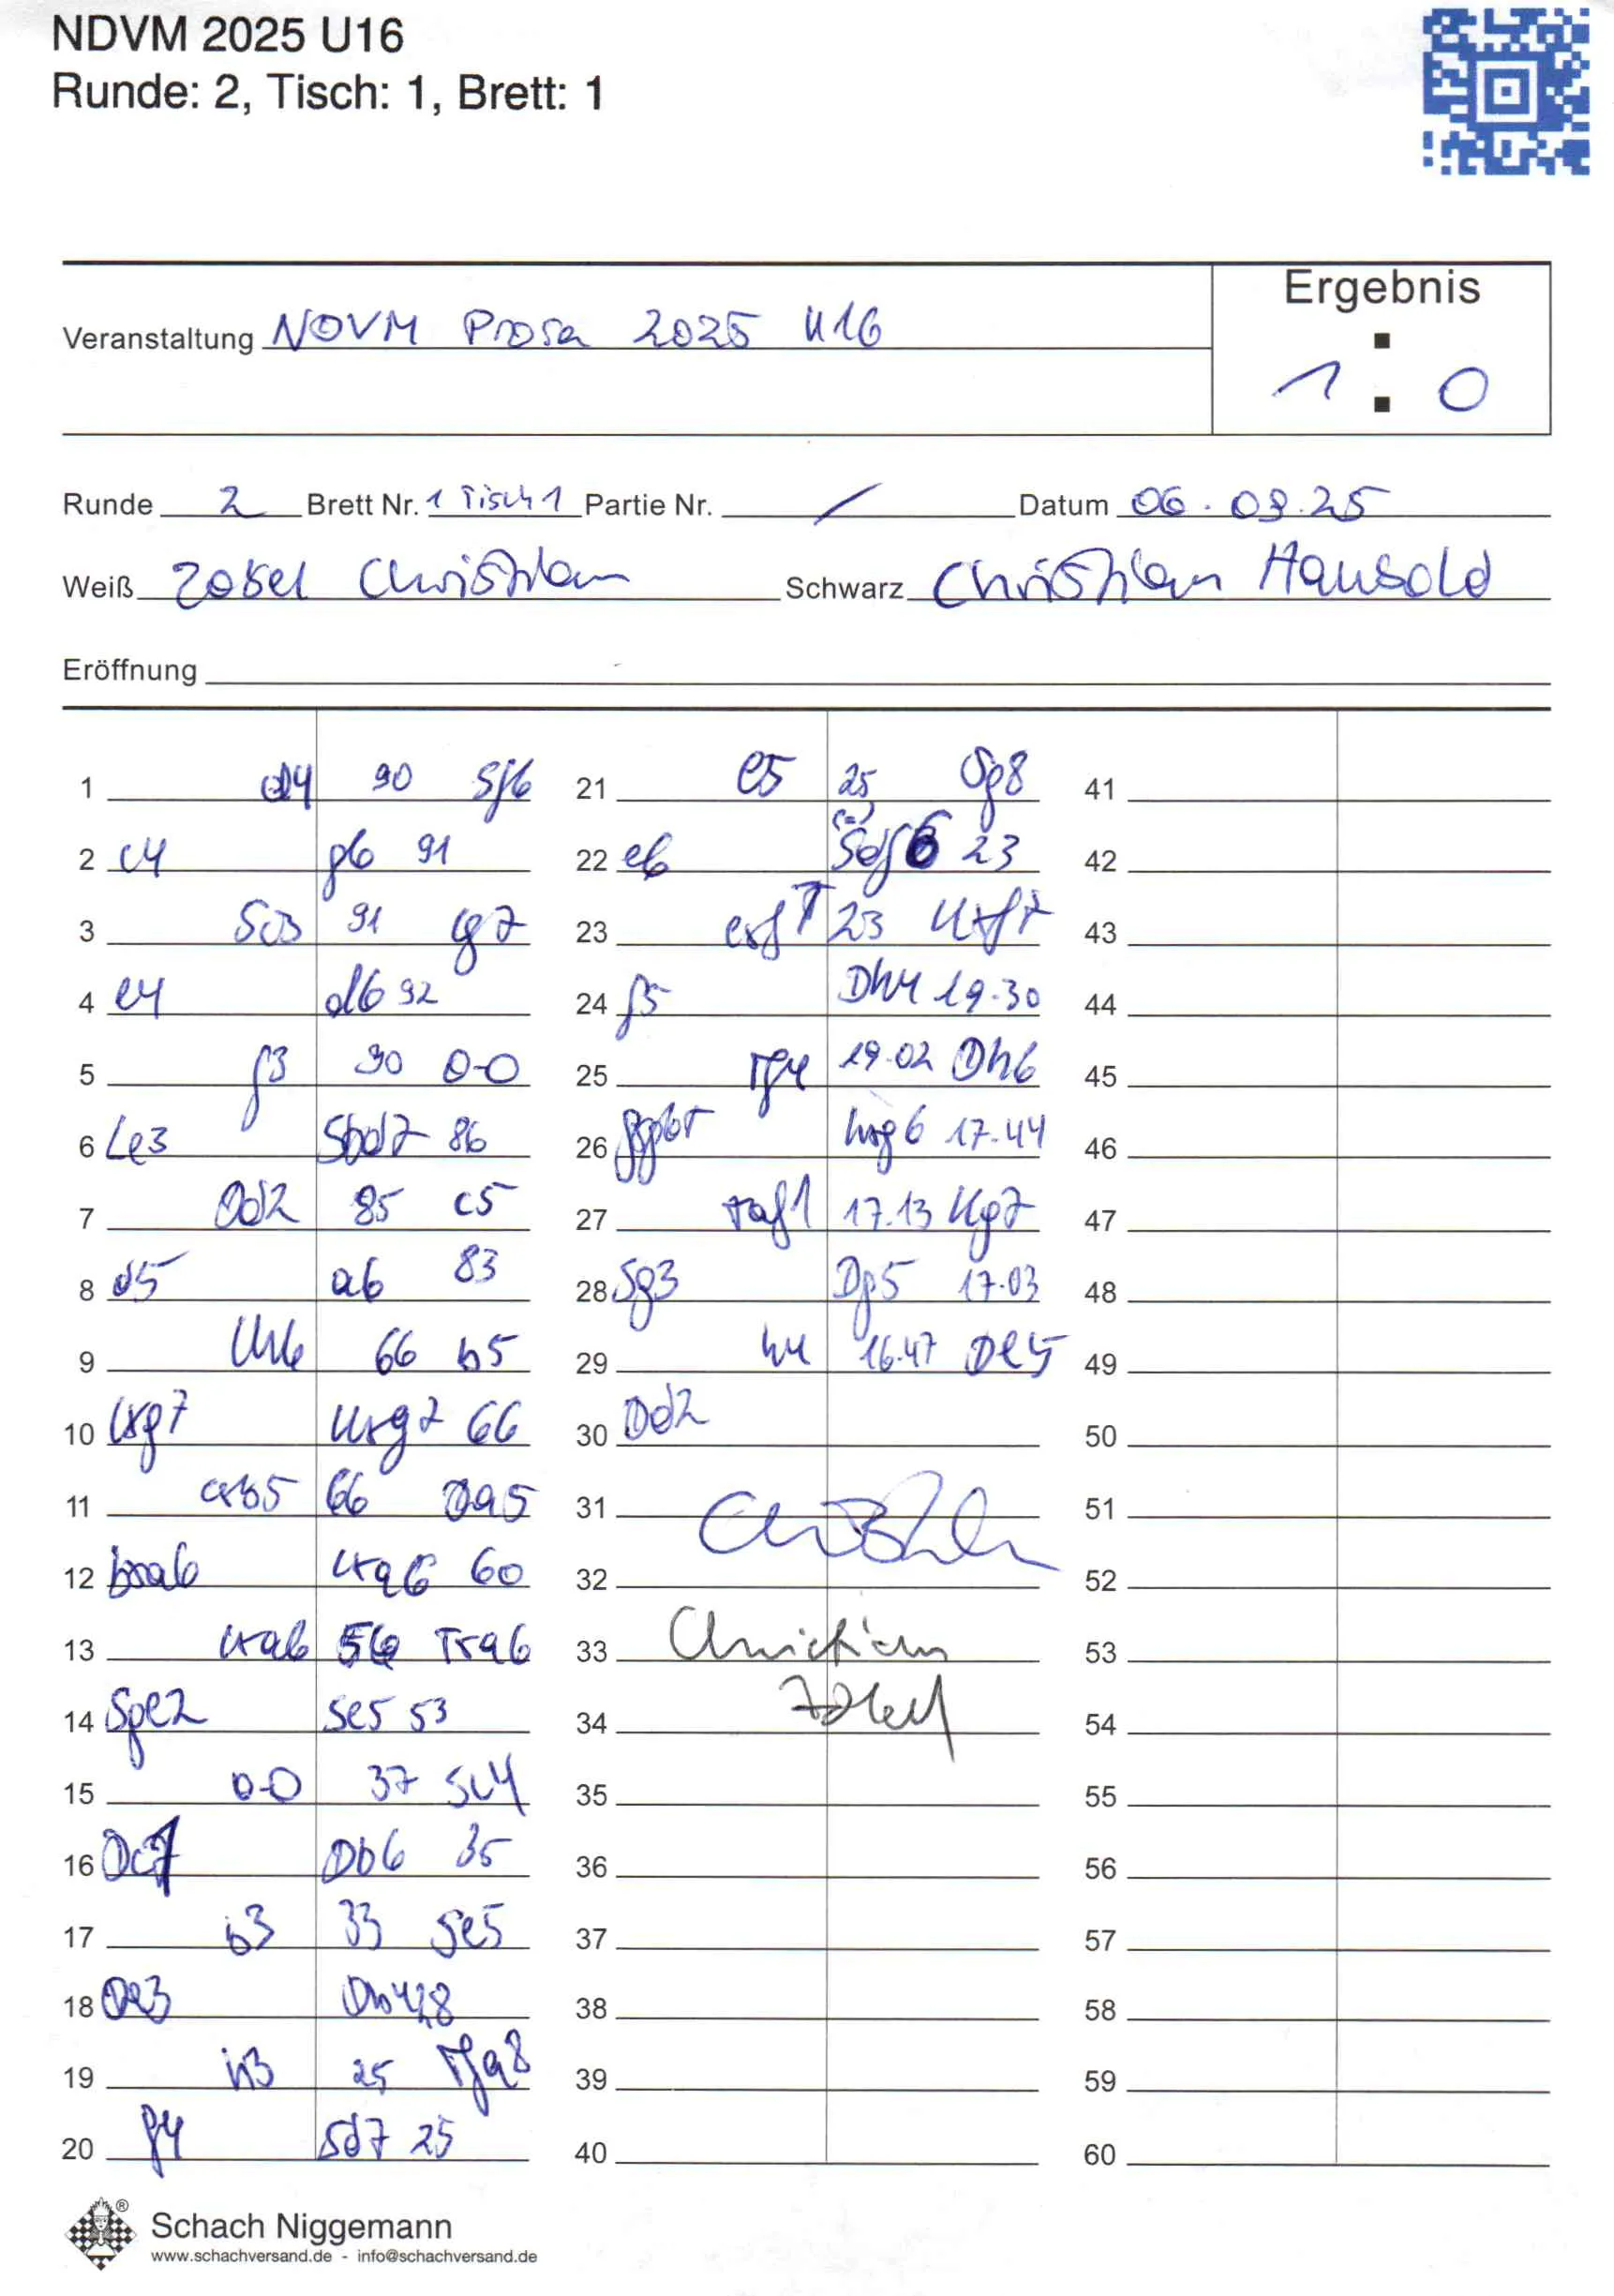 NDVM 2025 U16
Runde: 2, Tisch: 1, Brett: 1
Ergebnis
Veranstaltung NDVM Prosa 2025 U16
1 : 0
Runde 2 Brett Nr. 1 Tisch 1 Partie Nr. / Datum 06.09.25
Weiß Zobel Christian Schwarz Christian Hausold
Eröffnung
1 d4 90 Sf6
2 c4 g6 91
3 Sc3 91 Lg7
4 e4 d6 92
5 f3 90 0-0
6 Le3 Sbd7 86
7 Dd2 85 c5
8 d5 a6 83
9 Lh6 66 b5
10 Lxg7 Kxg7 66
11 cxb5 66 Da5
12 bxa6 Lxa6 60
13 Lxa6 56 Txa6
14 Sge2 Se5 53
15 0-0 37 Sc4
16 Dc1 Db6 35
17 b3 33 Se5
18 De3 Db4 28
19 h3 25 Tfa8
20 f4 Sd7 25
21 e5 25 Sg8
22 e6 (=) Sdf6 23
23 exf7 23 Kxf7
24 f5 Dh4 19.30
25 Tf4 19.02 Dh6
26 fxg6+ hxg6 17.44
27 Taf1 17.13 Kg7
28 Sg3 Dg5 17.03
29 h4 16.47 De5
30 Dd2
31
32
33 Christian
34 Zobel
35
36
37
38
39
40
41
42
43
44
45
46
47
48
49
50
51
52
53
54
55
56
57
58
59
60
® Schach Niggemann
www.schachversand.de - info@schachversand.de